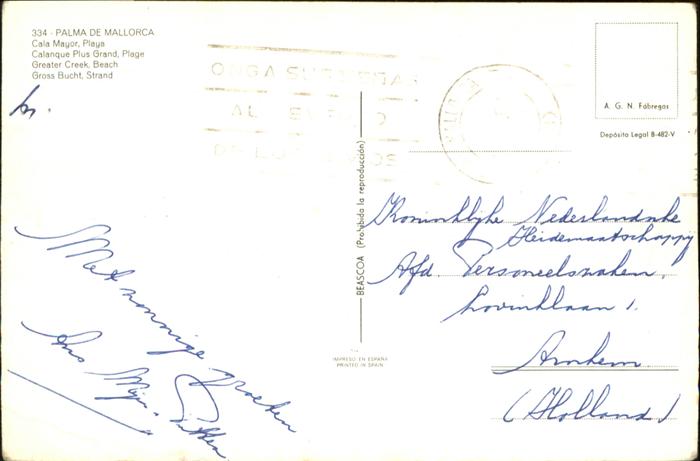 334 - PALMA DE MALLORCA
Cala Mayor, Playa
Calanque Plus Grand, Plage
Greater Creek, Beach
Gross Bucht, Strand
PONGA SUS SEÑAS
AL
A. G. N. Fábregas
Depósito Legal B-482-V
BEASCOA (Prohibida la reproducción)
IMPRESO EN ESPAÑA
PRINTED IN SPAIN
Met zonnige groeten
Ans
Koninklijke Nederlandsche
Heidemaatschappij
Afd. Personeelszaken,
Lovinklaan 1.
Arnhem
(Holland)